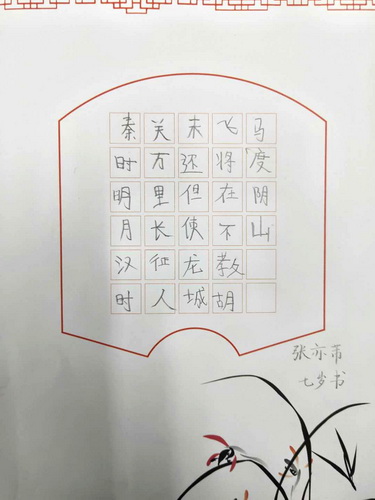 秦时明月汉时
关万里长征人
未还但使龙城
飞将在不教胡
马度阴山
张亦
七岁书